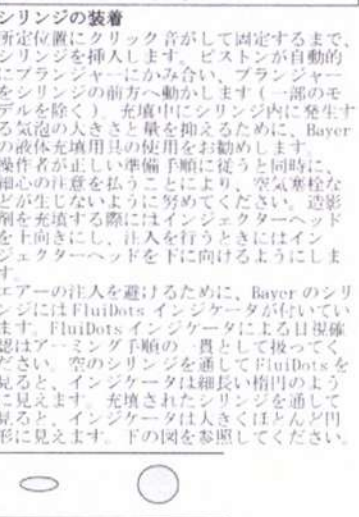 シリンジの装着
所定位置にクリック音がして固定するまで、
シリンジを挿入します。ピストンが自動的
にプランジャーにかみ合い、プランジャー
をシリンジの前方へ動かします(一部のモ
デルを除く)。充填中にシリンジ内に発生す
る気泡の大きさと量を抑えるために、Bayer
の液体充填用具の使用をお勧めします。
操作者が正しい準備手順に従うと同時に、
細心の注意を払うことにより、空気塞栓な
どが生じないように努めてください。造影
剤を充填する際にはインジェクターヘッド
を上向きにし、注入を行うときにはイン
ジェクターヘッドを下に向けるようにしま
す。
エアーの注入を避けるために、Bayer のシリ
ンジには FluiDots インジケータが付いてい
ます。FluiDots インジケータによる目視確
認はアーミング手順の一貫として扱ってく
ださい。空のシリンジを通して FluiDots を
見ると、インジケータは細長い楕円のよう
に見えます。充填されたシリンジを通して
見ると、インジケータは大きくほとんど円
形に見えます。下の図を参照してください。